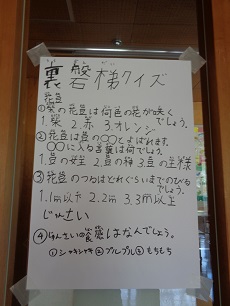 裏磐梯クイズ
花豆
①紫の花豆は何色の花が咲く
でしょう。
1.紫 2.赤 3.オレンジ
②花豆は豆の〇〇とよばれます。
〇〇に入る言葉は何でしょう。
1.豆の女王 2.豆の神 3.豆の王様
③花豆のつるはどれぐらいまでのびる
でしょう。
1.1m以下 2.2m 3.3m以上
じゅんさい
④じゅんさいの食感はなんでしょう。
①シャキシャキ ②プルプル ③もちもち